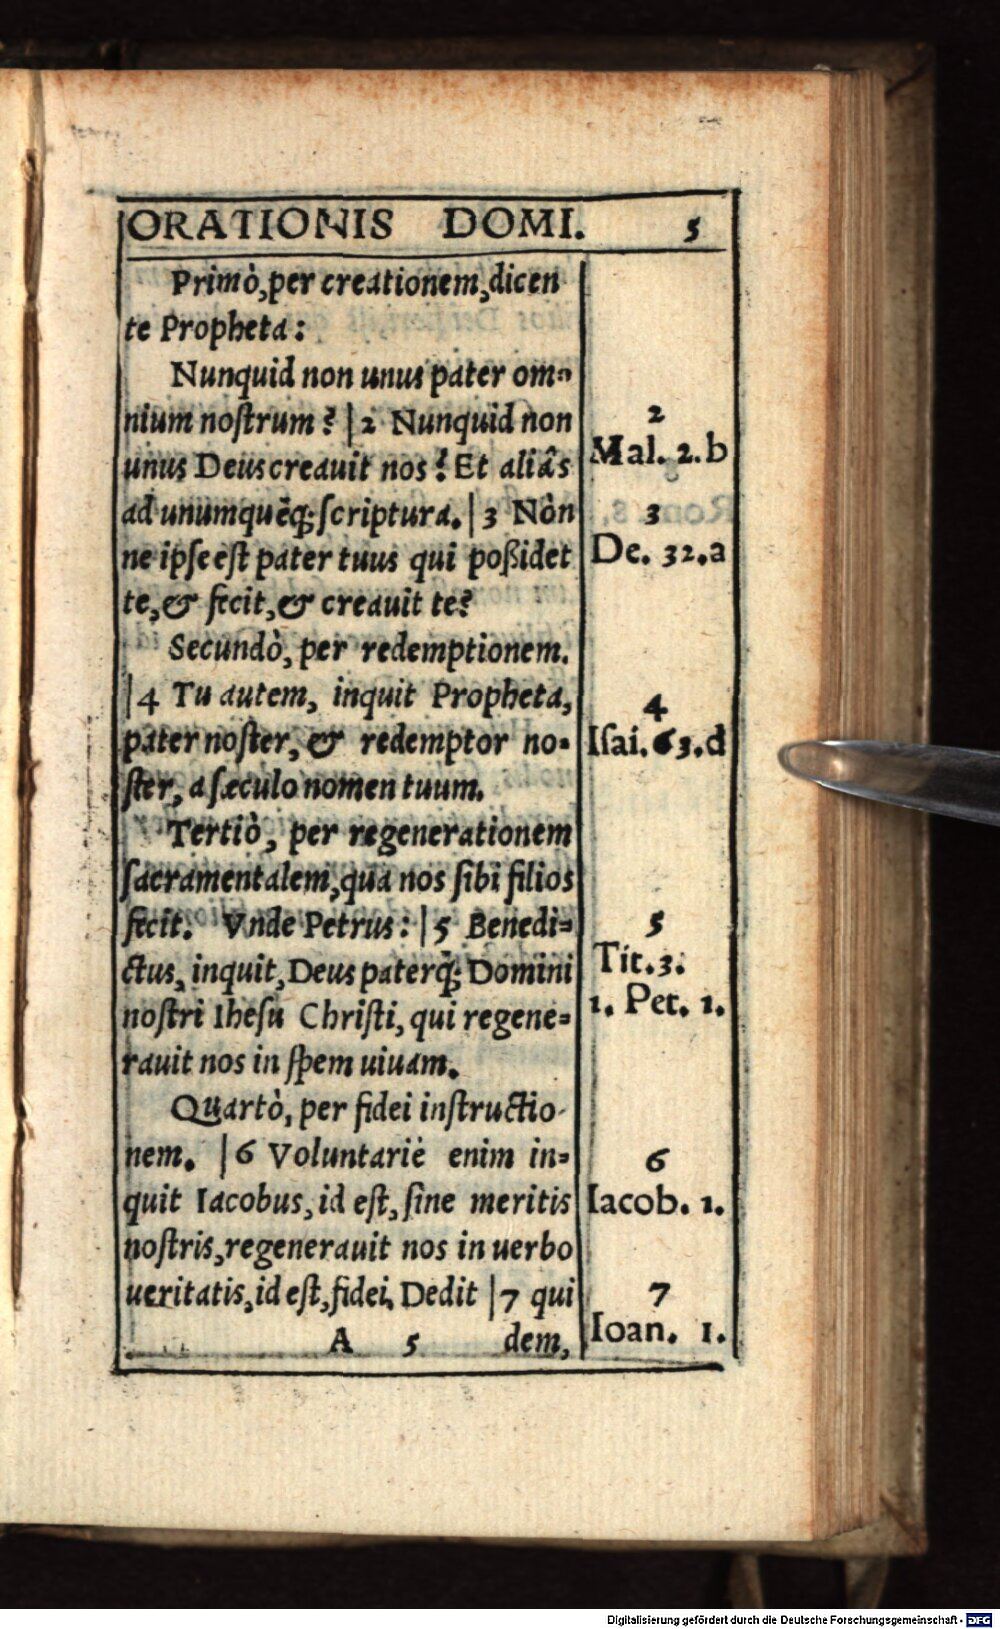 ORATIONIS DOMI. 5
Primò, per creationem, dicen
te Propheta:
Nunquid non unus pater om⸗
nium noſtrum? |2 Nunquid non
unus Deus creauit nos? Et aliâs
ad unumquẽq; ſcriptura. |3 Nòn
ne ipſe eſt pater tuus qui poßidet
te, & fecit, & creauit te?
Secundò, per redemptionem.
|4 Tu autem, inquit Propheta,
pater noſter, & redemptor no⸗
ſter, a ſæculo nomen tuum.
Tertiò, per regenerationem
ſacramentalem, qua nos ſibi filios
fecit. Vnde Petrus: |5 Benedi⸗
ctus, inquit, Deus paterq́; Domini
noſtri Iheſu Chriſti, qui regene⸗
rauit nos in ſpem uiuam.
Quartò, per fidei inſtructio-
nem. |6 Voluntariè enim in⸗
quit Iacobus, id eſt, ſine meritis
noſtris, regenerauit nos in uerbo
ueritatis, id eſt, fidei, Dedit |7 qui
A 5 dem,
2
Mal. 2. b
3
De. 32. a
4
Iſai. 63. d
5
Tit. 3.
1. Pet. 1.
6
Iacob. 1.
7
Ioan. 1.
Digitalisierung gefördert durch die Deutsche Forschungsgemeinschaft - DFG